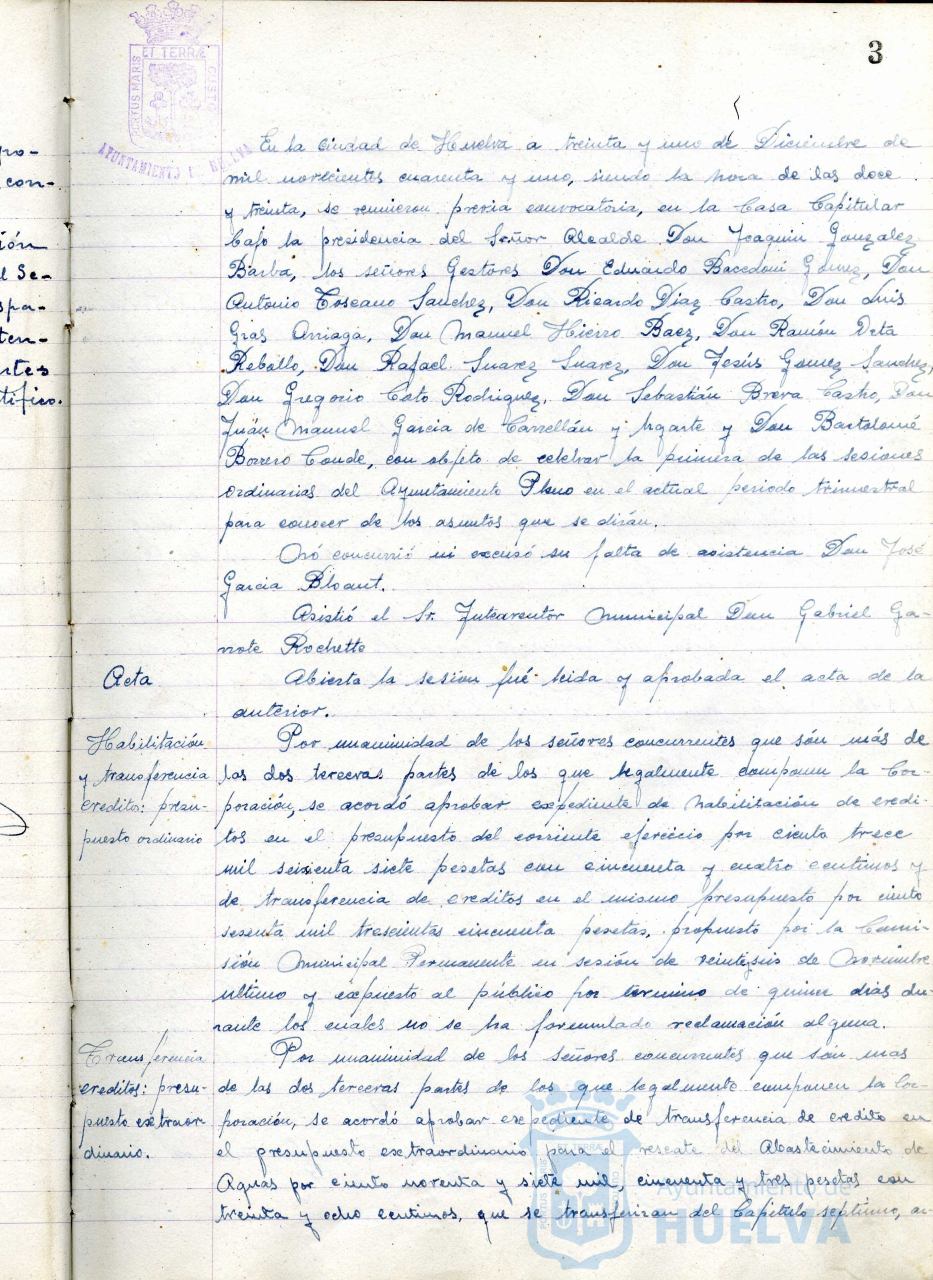 3
PORTUS MARIS ET TERRÆ CUSTO
AYUNTAMIENTO DE HUELVA
pro-
con-
ión
l Se-
spa-
ten-
rtes
tifico.
En la ciudad de Huelva a treinta y uno de Diciembre de
mil novecientos cuarenta y uno, siendo la hora de las doce
y treinta, se reunieron previa convocatoria, en la Casa Capitular
bajo la presidencia del Señor Alcalde Don Joaquin Gonzalez
Barba, los señores Gestores Don Eduardo Bacedoni Gomez, Don
Antonio Toscano Sanchez, Don Ricardo Diaz Castro, Don Luis
Gras Arriaga, Don Manuel Hierro Baez, Don Ramón Orta
Rebollo, Don Rafael Suarez Suarez, Don Jesús Gomez Sanchez,
Don Gregorio Coto Rodriguez, Don Sebastián Brera Castro, Don
Juán Manuel Garcia de Carrellán y Ugarte y Don Bartolomé
Borrero Conde, con objeto de celebrar la primera de las sesiones
ordinarias del Ayuntamiento Pleno en el actual periodo trimestral
para conocer de los asuntos que se dirán.
No concurrió ni excusó su falta de asistencia Don José
Garcia Bloant.
Asistió el Sr. Interventor Municipal Don Gabriel Ga-
rrote Rochette
Acta
Abierta la sesion fué leida y aprobada el acta de la
anterior.
Habilitación
y transferencia
credito: presu-
puesto ordinario
Por unanimidad de los señores concurrentes que són más de
las dos terceras partes de los que legalmente componen la Cor-
poración, se acordó aprobar expediente de habilitación de credi-
tos en el presupuesto del corriente ejercicio por ciento trece
mil seisenta siete pesetas con cincuenta y cuatro centimos y
de transferencia de creditos en el mismo presupuesto por ciento
sesenta mil trescientas cincuenta pesetas, propuesto por la Comi-
sión Municipal Permanente en sesión de veintiseis de Noviembre
ultimo y expuesto al público por termino de quince dias du-
rante los cuales no se ha formulado reclamación alguna.
Transferencia
creditos: presu-
puesto extraor
dinario.
Por unanimidad de los señores concurrentes que són mas
de las dos terceras partes de los que legalmente componen la Cor-
poración, se acordó aprobar expediente de transferencia de credito en
el presupuesto extraordinario para el rescate del Abastecimiento de
Aguas por ciento noventa y siete mil cincuenta y tres pesetas con
treinta y ocho centimos, que se transferiran del Capitulo septimo, ar-
Ayuntamiento de
HUELVA